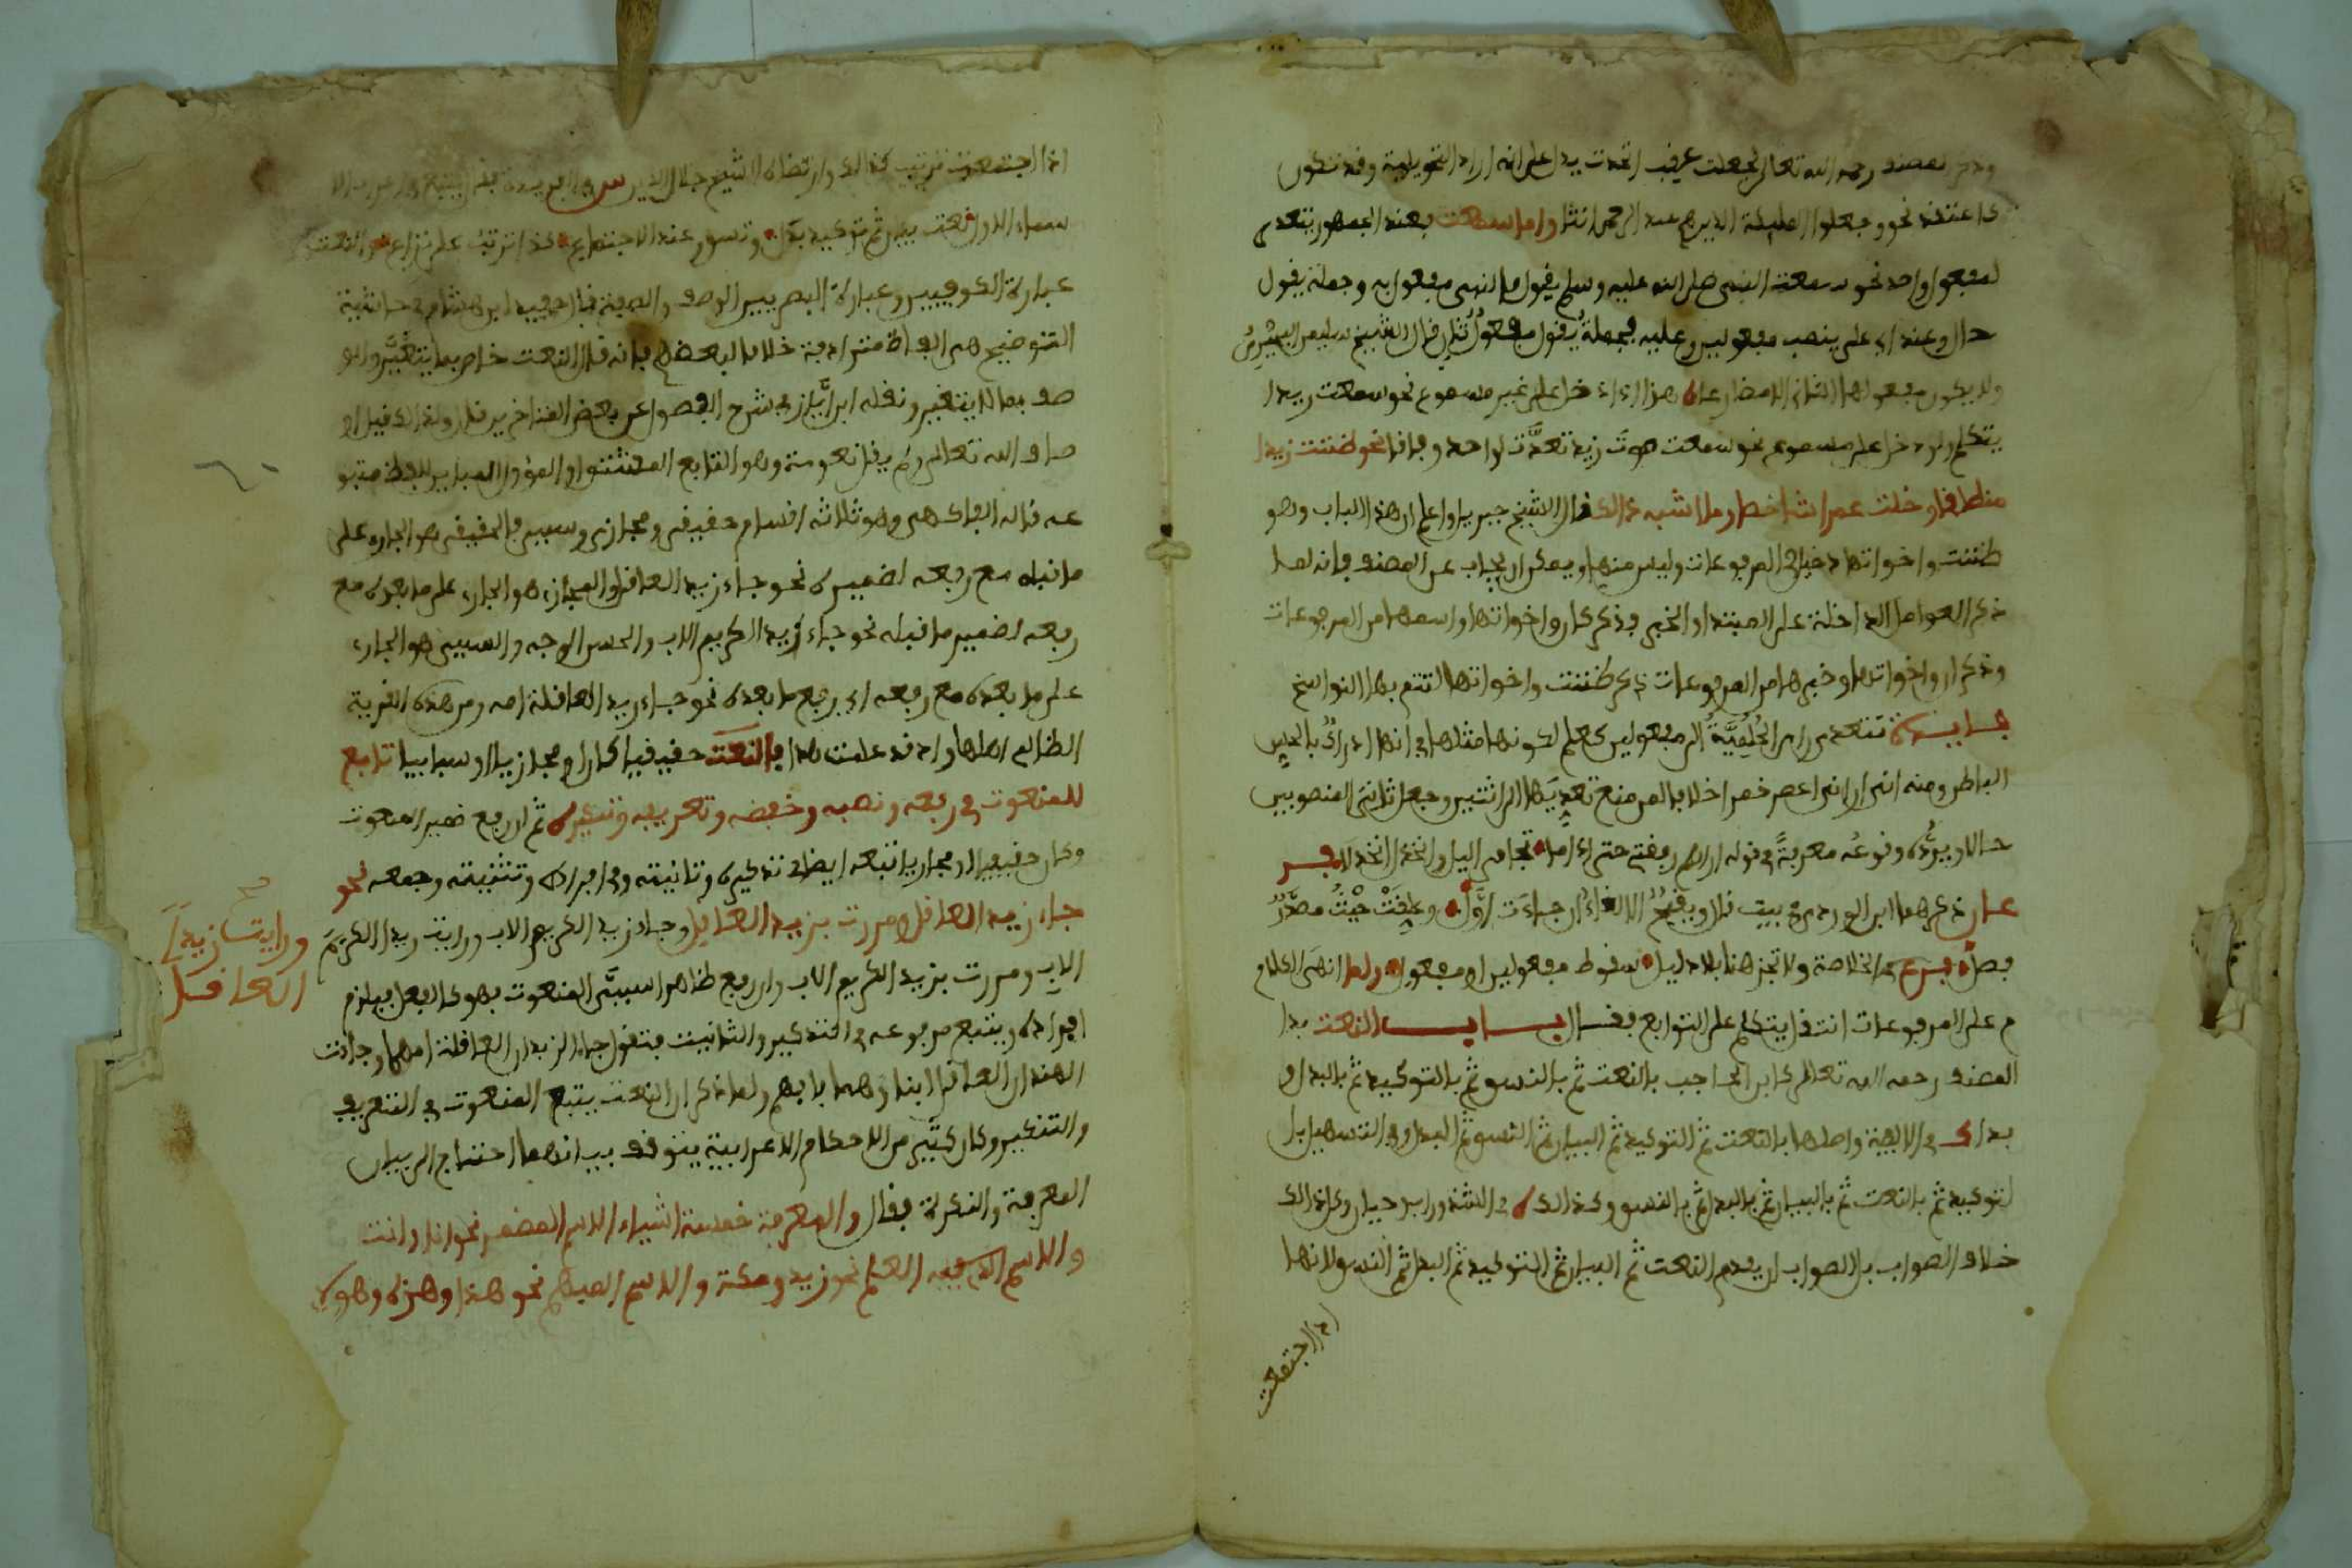 المصنف رحمه الله تعالى لجعلت عقب اتخذت يدل على انه اراد التحويلية وقد تكون
كاعتقد نحو وجعلوا الملئكة الذين هم عند الرحمن انثا واما سمعت فعند الجمهور تتعدى
لمفعول واحد نحو سمعت النبي صلى الله عليه وسلم يقول فالنبي مفعول به وجملة يقول
حال وعند ابي علي ينصب مفعولين وعليه فجملة يقول مفعول ثان قال الشيخ سليمن البشيري
ولا يكون مفعولها الثاني الا مضارعا هذا اذا دخل على غير مسموع نحو سمعت زيدا
يتكلم وان دخل على مسموع نحو سمعت صوت زيد تعدت لواحد وفاقا نحو ظننت زيدا
منطلقا وخلت عمرا شاخصا وما اشبه ذالك قال الشيخ جبريل واعلم ان هذا الباب وهو
ظننت واخواتها دخيل في المرفوعات وليس منها ويمكن ان يجاب عن المصنف بانه لما
ذكر العوامل الداخلة على المبتدا والخبر وذكر كان واخواتها واسمها من المرفوعات
وذكر ان واخواتها وخبرها من المرفوعات ذكر ظننت واخواتها لتتم بها النواسخ
فايدة تتعدى رأى الحلمية الى مفعولين كعلم لكونها مثلها في انها ادراك بالحس
الباطن ومنه اني اراني اعصر خمرا خلافا لمن منع تعديتها الى اثنين وجعل ثاني المنصوبين
حالا ويرده وقوعه معرفة في قوله اراهم رفقتي حتى اذا ما تجافى اليل وانخزل انخزلا فر
عان ذكرهما ابن الوردي في بيت فقال ويقبح الالغاء ان جاءت اول وعلقت حيث مصدر
فصل فرع في الخلاصة ولا تجز هنا بلا دليل سقوط مفعولين او مفعول ولما انهى الكلام
م على المرفوعات انتقل يتكلم على التوابع فقال باب النعت بدا
المصنف رحمه الله تعالى كابن الحاجب بالنعت ثم بالنسق ثم بالتوكيد ثم بالبدل و
بدا في الالفية واصلها بالنعت ثم التوكيد ثم البيان ثم النسق ثم البدل وفي التسهيل با
لتوكيد ثم بالنعت ثم بالبيان ثم بالبدل ثم بالنسق وكذالك في الشذور ابن حيان وكل ذالك
خلاف الصواب بل الصواب ان يقدم النعت ثم البيان ثم التوكيد ثم البدل ثم النسق لانها
اذا اجتمعت
اذا اجتمعت ترتب كذالك وارتضاه الشيخ جلال الدين
سماء الاول نعت بيان ثم توكيد بدل ونسق عند الاجتماع كذا ترتب على نزاع النعت
عبارة الكوفيين وعبارة البصريين الوصف والصفة قال حفيد ابن هشام في حاشية
التوضيح هي الفاظ مترادفة خلافا لبعضهم فانه قال النعت خاص بما يتغير والو
صف بما لا يتغير ونقله ابن اياز في شرح الفصول عن بعض المتاخرين قال ولذالك قيل او
صاف الله تعالى ولم يقل نعوته وهو التابع المشتق او المؤول المباين للفظ متبو
عه قاله الفاكهي وهو ثلاثة اقسام حقيقي ومجازي وسببي فالحقيقي هو الجاري على
ما قبله مع رفعه لضميره نحو جاء زيد العاقل والمجازي هو الجاري على ما بعده مع
رفعه لضمير ما قبله نحو جاء زيد الكريم الاب والحسن الوجه والسببي هو الجاري
على ما بعده مع رفعه اي رفع ما بعده نحو جاء زيد العاقلة امه ومن هذه القرية
الظالم اهلها واذ قد علمت هذا فالنعت حقيقيا كان او مجازيا او سببيا تابع
للمنعوت في رفعه ونصبه وخفضه وتعريفه وتنكيره ثم ان رفع ضمير المنعوت
وكان حقيقيا او مجازيا تبعه ايضا في تذكيره وتانيثه وفي افراده وتثنيته وجمعه نحو
جاء زيد العاقل ومررت بزيد العاقل وجاء زيد الكريم الاب ورايت زيدا الكريم
ورايت زيدا
العاقل
صح
الاب ومررت بزيد الكريم الاب وان رفع ظاهرا سببي المنعوت فهو كالفعل فيلزم
افراده ويتبع مرفوعه في التذكير والتانيث فتقول جاء الزيدان العاقلة امهما وجاءت
الهندان العاقل ابناؤهما بابهم ولما ذكر ان النعت يتبع المنعوت في التعريف
والتنكير وكان كثير من الاحكام الاعرابية يتوقف ببيانهما احتاج الى بيان
المعرفة والنكرة فقال والمعرفة خمسة اشياء الاسم المضمر نحو انا وانت
والاسم العلم نحو زيد ومكة والاسم المبهم نحو هذا وهذه وهولا